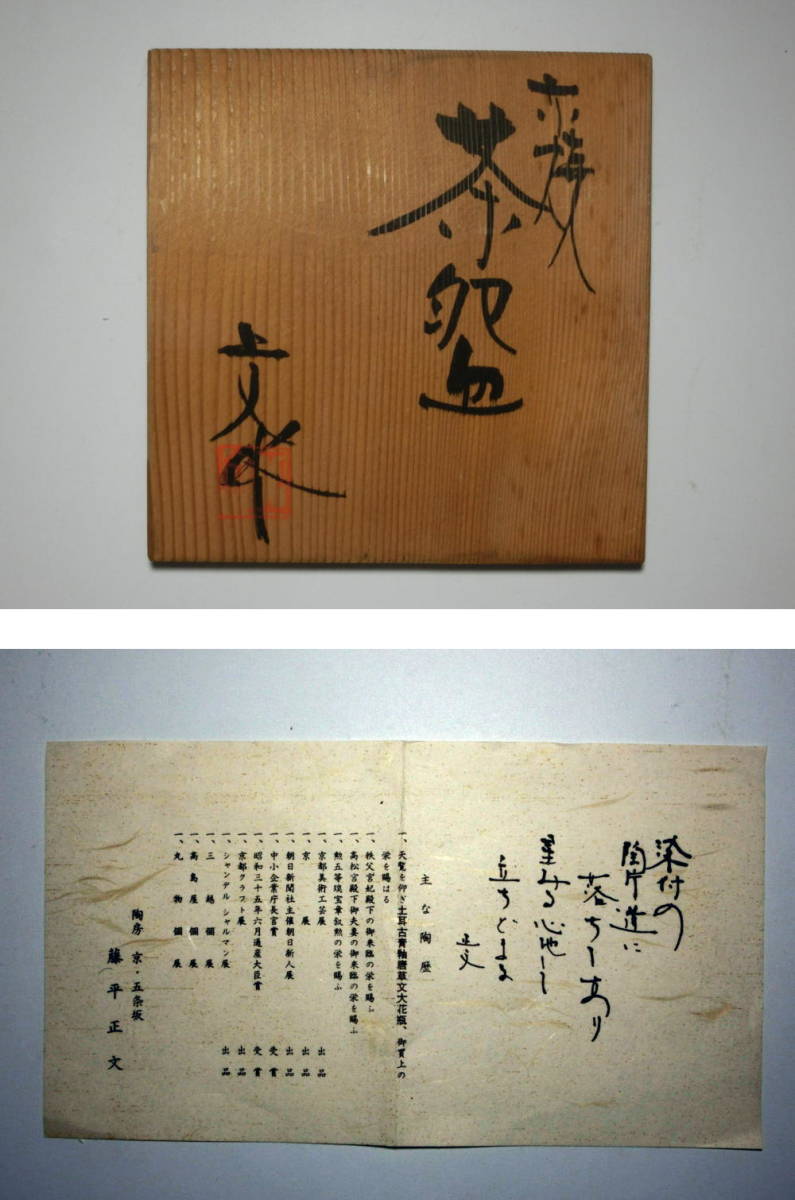 茶盌
染付の
陶片道に
落ちてあり
星みる心地して
立ちどまる
正文
主な陶歴
一、天覧を仰ぎ土耳古青釉磨草文大花瓶、御買上の
栄を賜はる
一、秩父宮妃殿下の御来臨の栄を賜ふ
一、高松宮殿下御夫妻の御来臨の栄を賜ふ
一、勲五等瑞宝章叙勲の栄を賜ふ
一、京都美術工芸展 出品
一、京展 出品
一、朝日新聞社主催朝日新人展 出品
一、中小企業庁長官賞 受賞
一、昭和三十五年六月通産大臣賞 受賞
一、京都クラフト展 出品
一、シャンデル シャルマン展 出品
一、三越個展
一、高島屋個展
一、丸物個展
陶房 京・五条坂
藤平正文